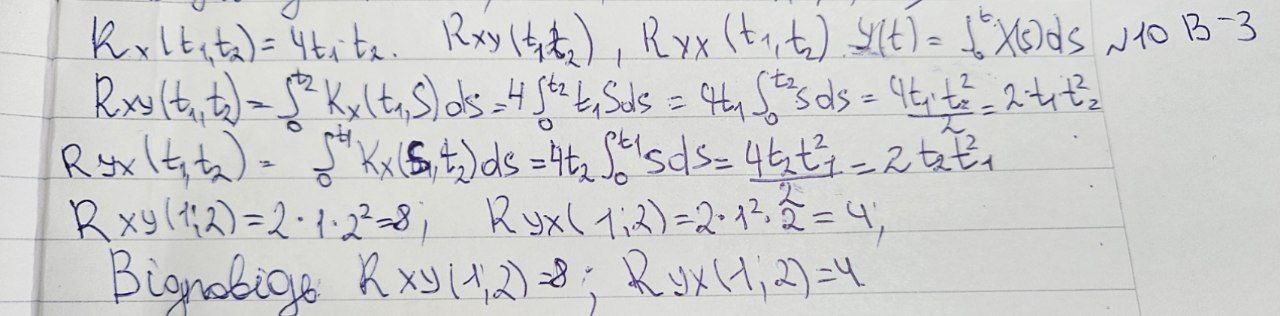 Kx(t₁,t₂) = 4t₁·t₂. Rxy(t₁,t₂), Ryx(t₁,t₂) y(t) = ∫₀ᵗ X(s)ds №10 В-3
Rxy(t₁,t₂) = ∫₀^t₂ Kx(t₁,S)ds = 4∫₀^t₂ t₁Sds = 4t₁∫₀^t₂ sds = 4t₁·t₂²/2 = 2·t₁t₂²
Ryx(t₁,t₂) = ∫₀^t₁ Kx(S,t₂)ds = 4t₂∫₀^t₁ sds = 4t₂t₁²/2 = 2t₂t₁²
Rxy(1;2) = 2·1·2² = 8; Ryx(1;2) = 2·1²·2 = 4;
Відповідь Rxy(1;2) = 8; Ryx(1;2) = 4